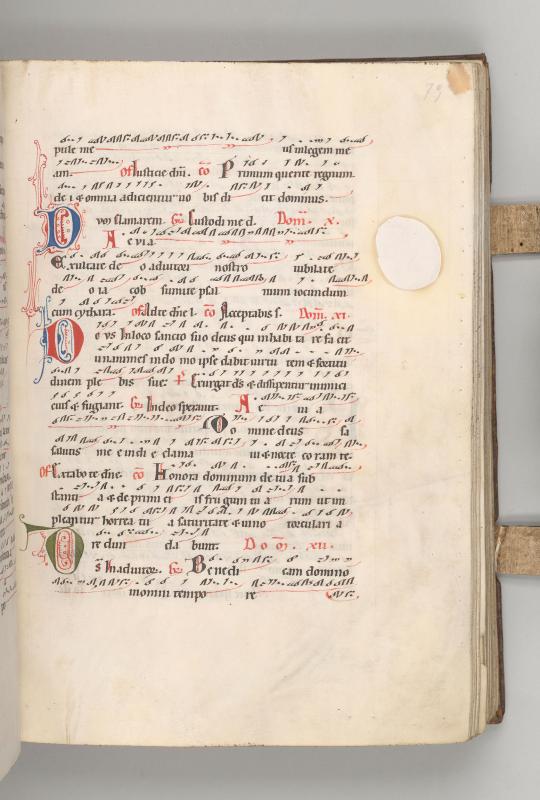 79
pule me us in legem me
am. of Iusticie dni. co Primum querite regnum
de i & omnia adicientur uo bis di cit dominus.
D um clamarem. Gr Custodi me d. Dom. x.
A e v i a.
Exultate de o adiutori nostro iubilate
de o ia cob sumite psal mum iocundum
cum cythara. of Ad te dne l. co Acceptabis s. Dom. xi.
D eus In loco sancto suo deus qui inhabi ta re fa cit
unanimes in do mo ipse dabit uirtu tem & fortitu
dinem ple bis sue. ps Exurgat ds & dissipentur inimici
eius & fugiant. Gr In deo sperauit. A e ui a
Do mine deus sa
lutis me e in di e clama ui & nocte co ram te.
of Exalta bo te dne. co Honora dominum de tu a sub
stanti a & de primi ti is fru gum tu a rum ut im
pleantur horrea tu a saturitate & uino torcularia
redun da bunt. Dom. xii.
D s In adiutor. Gr Benedi cam domino
in omni tempo re